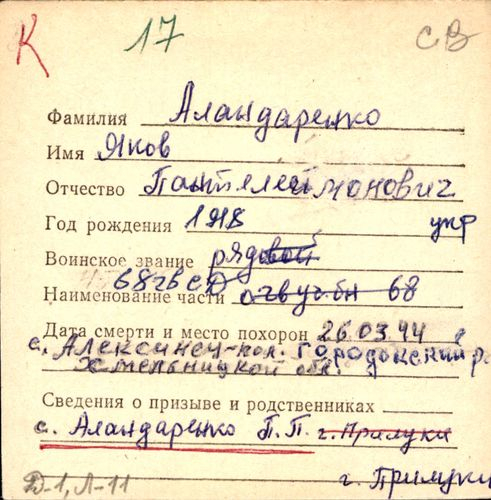 К 17 СВ
Фамилия Аландаренко
Имя Яков
Отчество Пантелеймонович
Год рождения 1918 укр
Воинское звание рядовой
68 гв СД
Наименование части 68
Дата смерти и место похорон 26.03.44 г
с. Алексинец-пол. Городокский р
Хмельницкой обл.
Сведения о призыве и родственниках
с. Аландаренко П.П. г. Прилуки
Д-1, Л-11 г. Прилуки